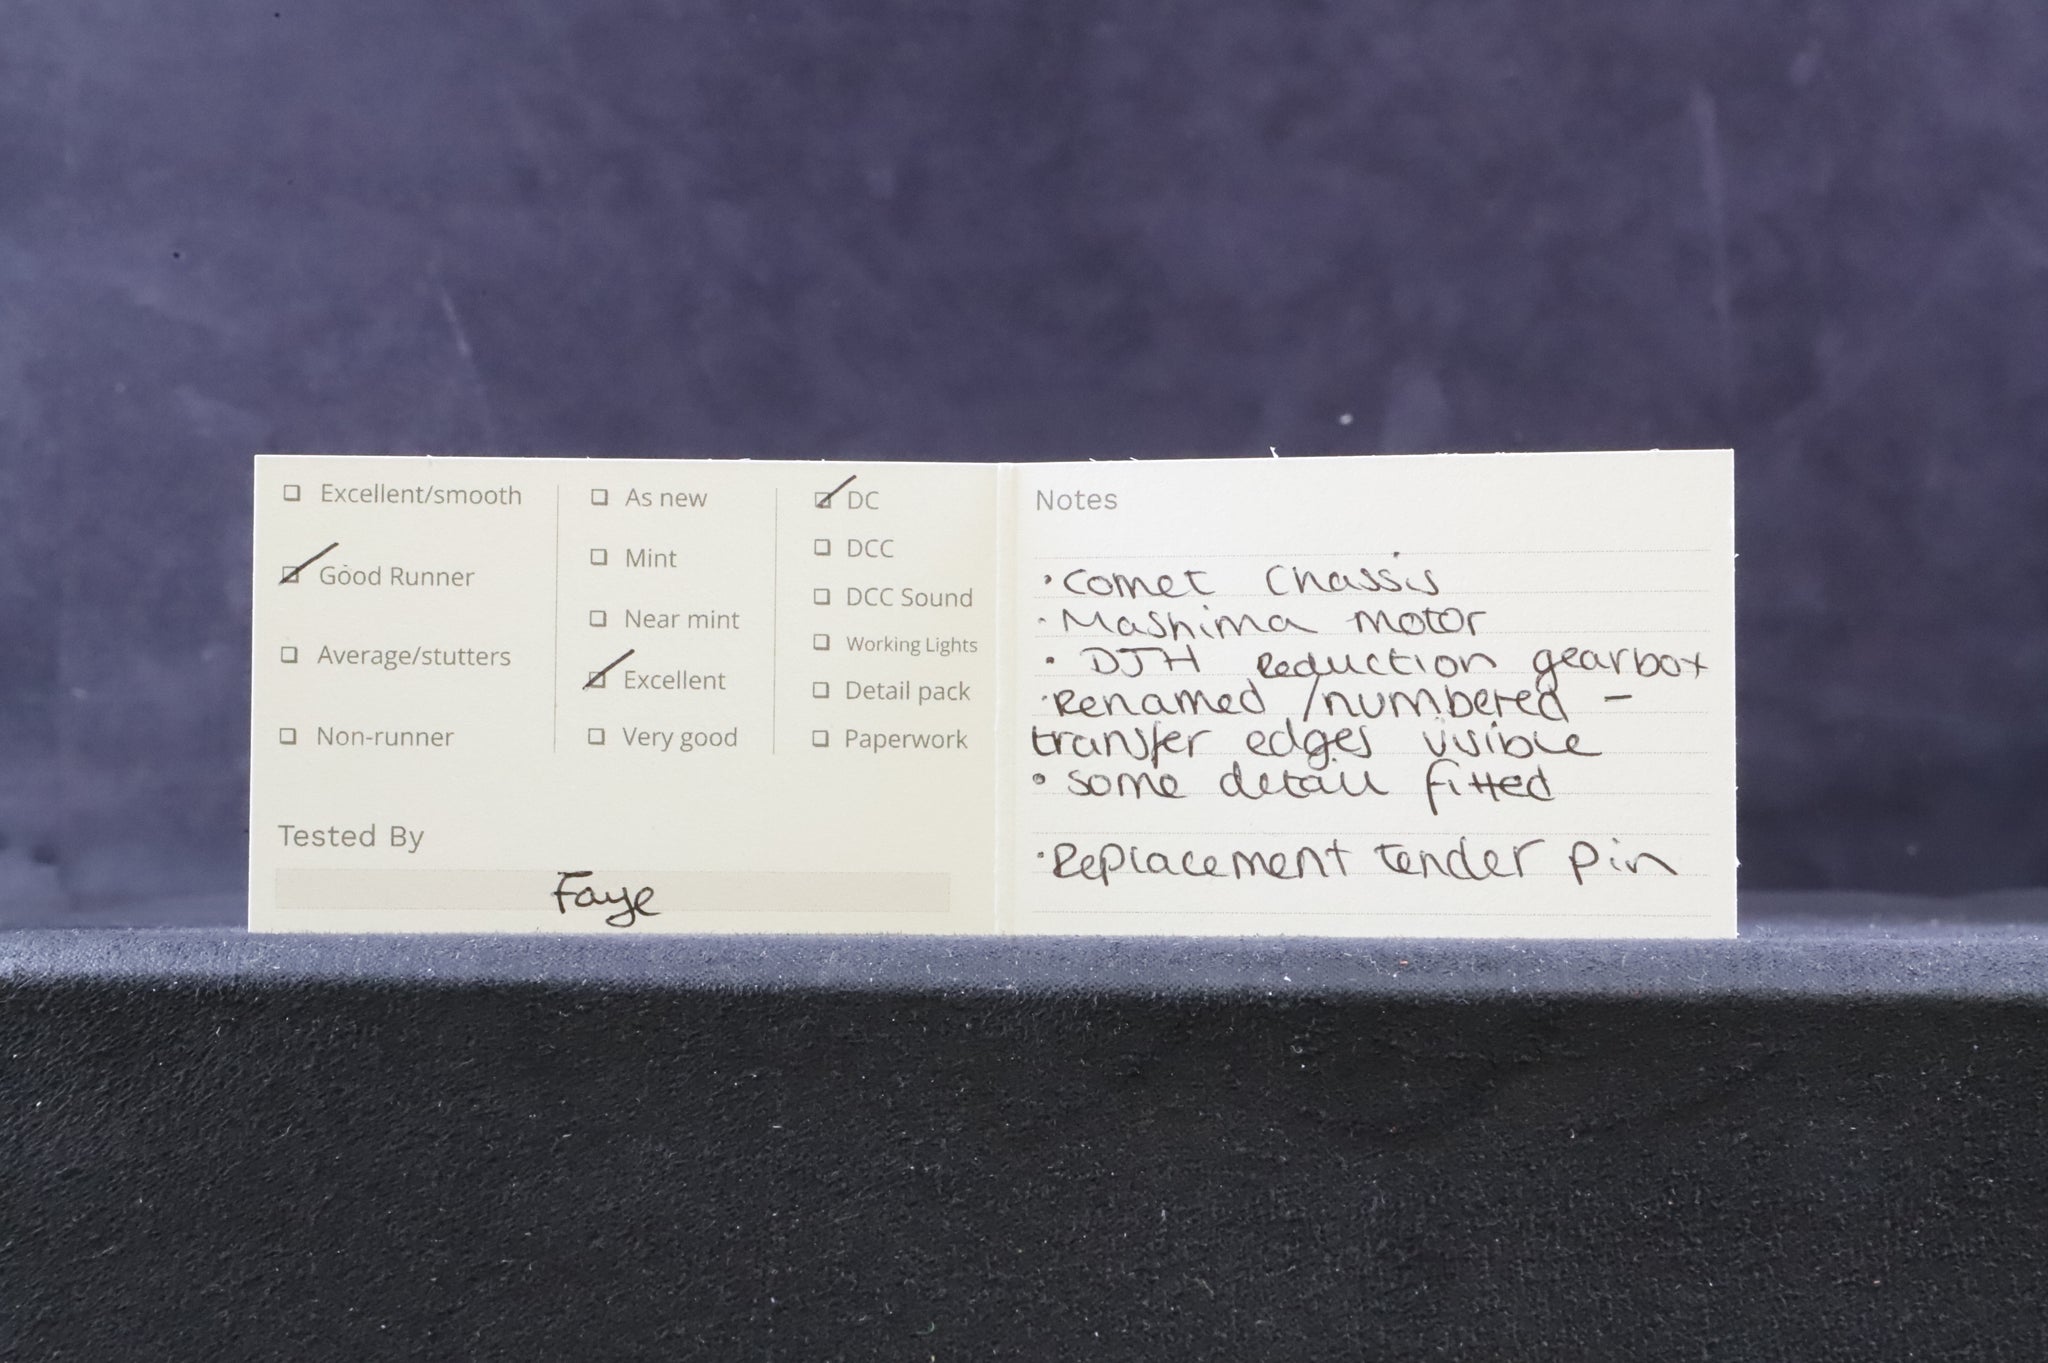 Excellent/smooth
Good Runner
Average/stutters
Non-runner
As new
Mint
Near mint
Excellent
Very good
DC
DCC
DCC Sound
Working Lights
Detail pack
Paperwork
Tested By
Faye
Notes
• Comet Chassis
• Mashima motor
• DJH Reduction gearbox
• Renamed /numbered –
transfer edges visible
• some detail fitted
• Replacement tender pin